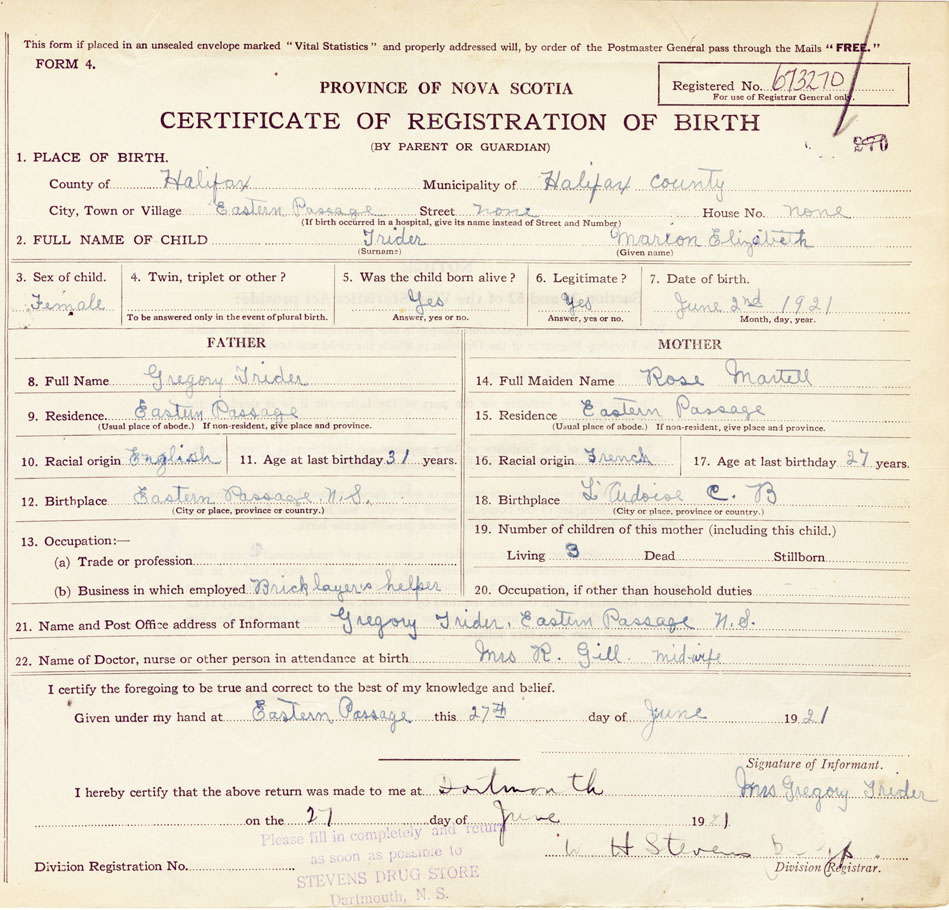 This form if placed in an unsealed envelope marked "Vital Statistics" and properly addressed will, by order of the Postmaster General pass through the Mails "FREE."
FORM 4.
Registered No. 673270
For use of Registrar General only.
PROVINCE OF NOVA SCOTIA
CERTIFICATE OF REGISTRATION OF BIRTH
(BY PARENT OR GUARDIAN)
270
1. PLACE OF BIRTH.
County of Halifax Municipality of Halifax county
City, Town or Village Eastern Passage Street none House No. none
(If birth occurred in a hospital, give its name instead of Street and Number)
2. FULL NAME OF CHILD Trider Marion Elizabeth
(Surname) (Given name)
3. Sex of child. 4. Twin, triplet or other? 5. Was the child born alive? 6. Legitimate? 7. Date of birth.
Female Yes Yes June 2nd 1921
To be answered only in the event of plural birth. Answer, yes or no. Answer, yes or no. Month, day, year.
FATHER
8. Full Name Gregory Trider
9. Residence. Eastern Passage
(Usual place of abode.) If non-resident, give place and province.
10. Racial origin English 11. Age at last birthday 31 years.
12. Birthplace Eastern Passage N.S.
(City or place, province or country.)
13. Occupation:—
(a) Trade or profession
(b) Business in which employed Bricklayer's helper
MOTHER
14. Full Maiden Name Rose Martell
15. Residence Eastern Passage
(Usual place of abode.) If non-resident, give place and province.
16. Racial origin French 17. Age at last birthday 27 years.
18. Birthplace L'Ardoise C. B
(City or place, province or country.)
19. Number of children of this mother (including this child.)
Living 3 Dead Stillborn
20. Occupation, if other than household duties
21. Name and Post Office address of Informant Gregory Trider, Eastern Passage N.S.
22. Name of Doctor, nurse or other person in attendance at birth Mrs R. Gill midwife
I certify the foregoing to be true and correct to the best of my knowledge and belief.
Given under my hand at Eastern Passage this 27th day of June 1921
Signature of Informant.
Mrs Gregory Trider
I hereby certify that the above return was made to me at Dartmouth
on the 27 day of June 1921
W H Stevens
Division Registration No. Division Registrar.
Please fill in completely and return
as soon as possible to
STEVENS DRUG STORE
Dartmouth, N. S.